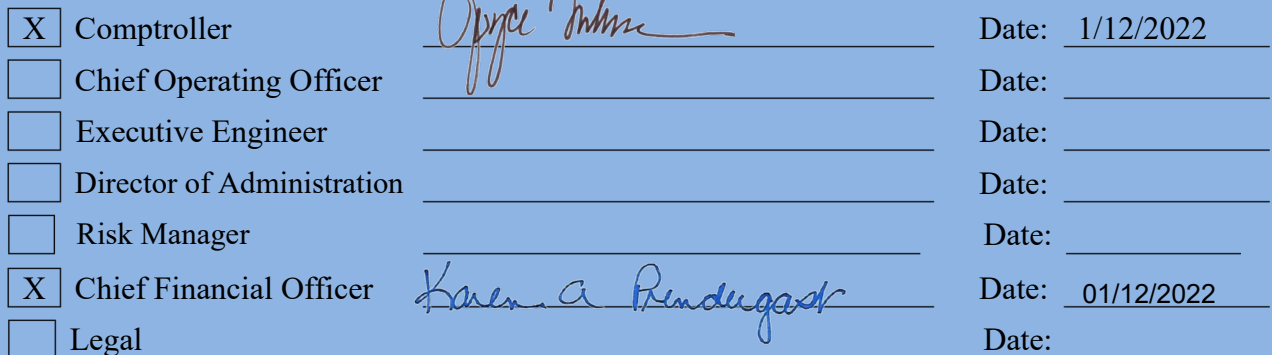 X Comptroller Date: 1/12/2022
Chief Operating Officer Date:
Executive Engineer Date:
Director of Administration Date:
Risk Manager Date:
X Chief Financial Officer Karen A Prendergast Date: 01/12/2022
Legal Date: